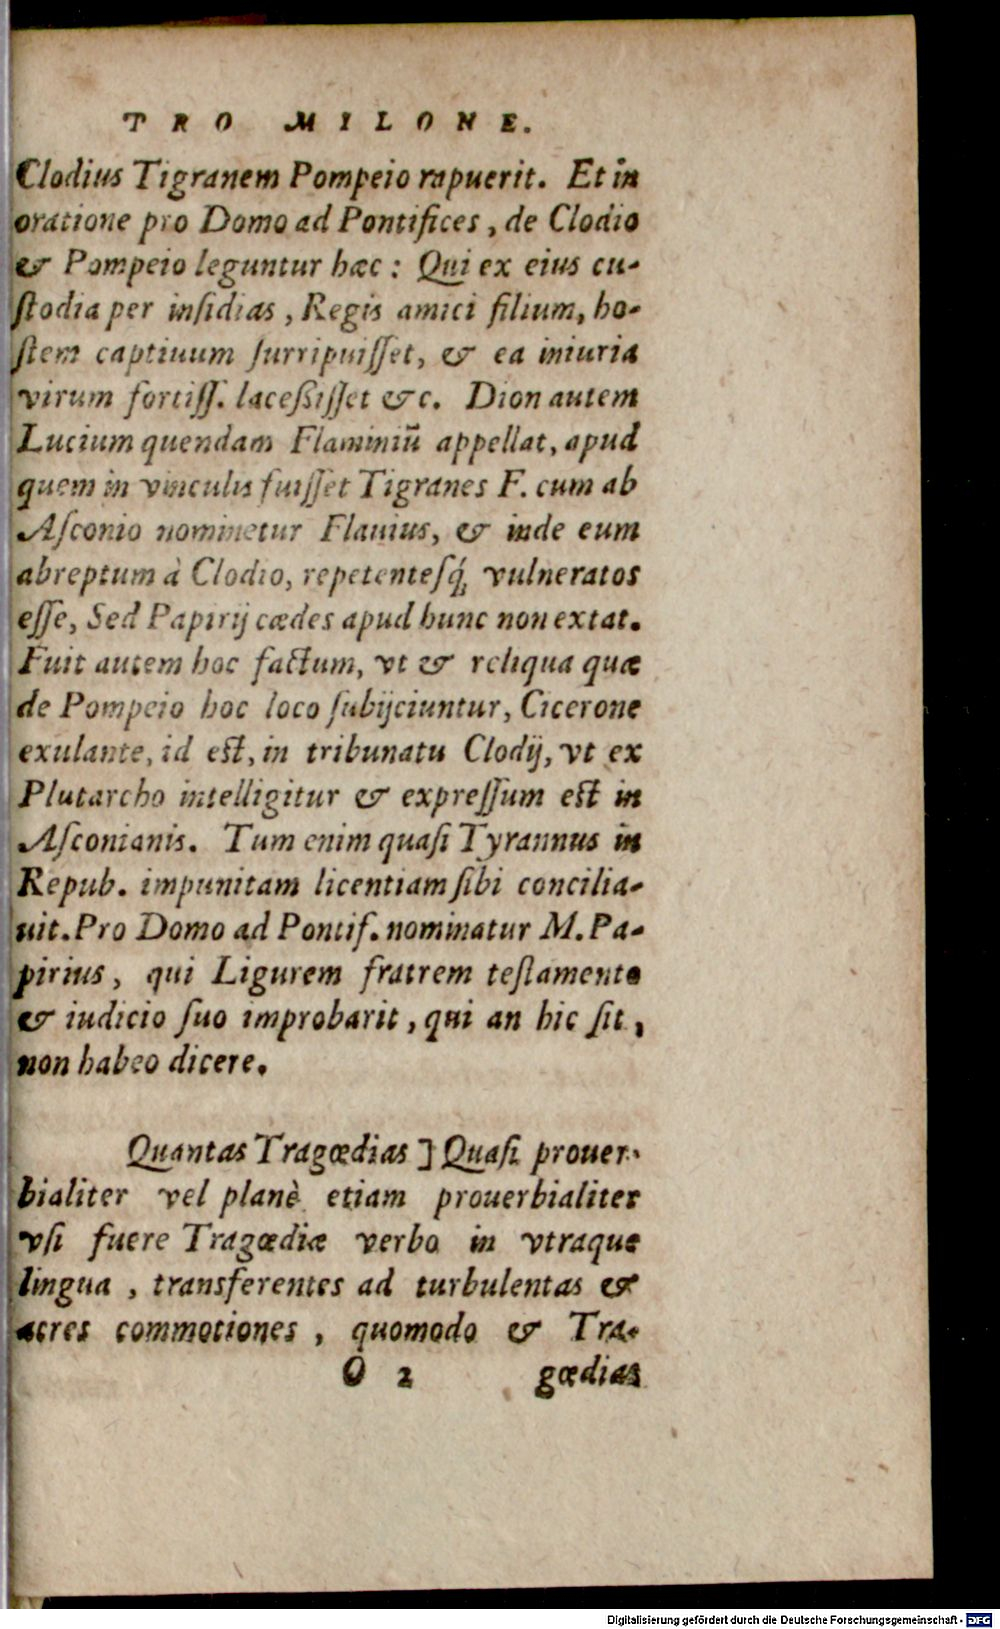 PRO MILONE.
Clodius Tigranem Pompeio rapuerit. Et in
oratione pro Domo ad Pontifices, de Clodio
& Pompeio leguntur hæc: Qui ex eius cu-
ſtodia per inſidias, Regis amici filium, ho-
ſtem captiuum ſurripuiſſet, & ea iniuria
virum fortiſſ. laceßiſſet &c. Dion autem
Lucium quendam Flaminiū appellat, apud
quem in vinculis fuiſſet Tigranes F. cum ab
Aſconio nominetur Flauius, & inde eum
abreptum à Clodio, repetenteſq́; vulneratos
eſſe, Sed Papirij cædes apud hunc non extat.
Fuit autem hoc factum, vt & reliqua quæ
de Pompeio hoc loco ſubijciuntur, Cicerone
exulante, id est, in tribunatu Clodij, vt ex
Plutarcho intelligitur & expreſſum est in
Aſconianis. Tum enim quaſi Tyrannus in
Repub. impunitam licentiam ſibi concilia-
uit. Pro Domo ad Pontif. nominatur M. Pa-
pirius, qui Ligurem fratrem teſtamento
& iudicio ſuo improbarit, qui an hic ſit,
non habeo dicere.
Quantas Tragœdias] Quaſi prouer-
bialiter vel planè etiam prouerbialiter
vſi fuere Tragœdiæ verbo in vtraque
lingua, transferentes ad turbulentas &
acres commotiones, quomodo & Tra-
O 2 gœdias
Digitalisierung gefördert durch die Deutsche Forschungsgemeinschaft - DFG